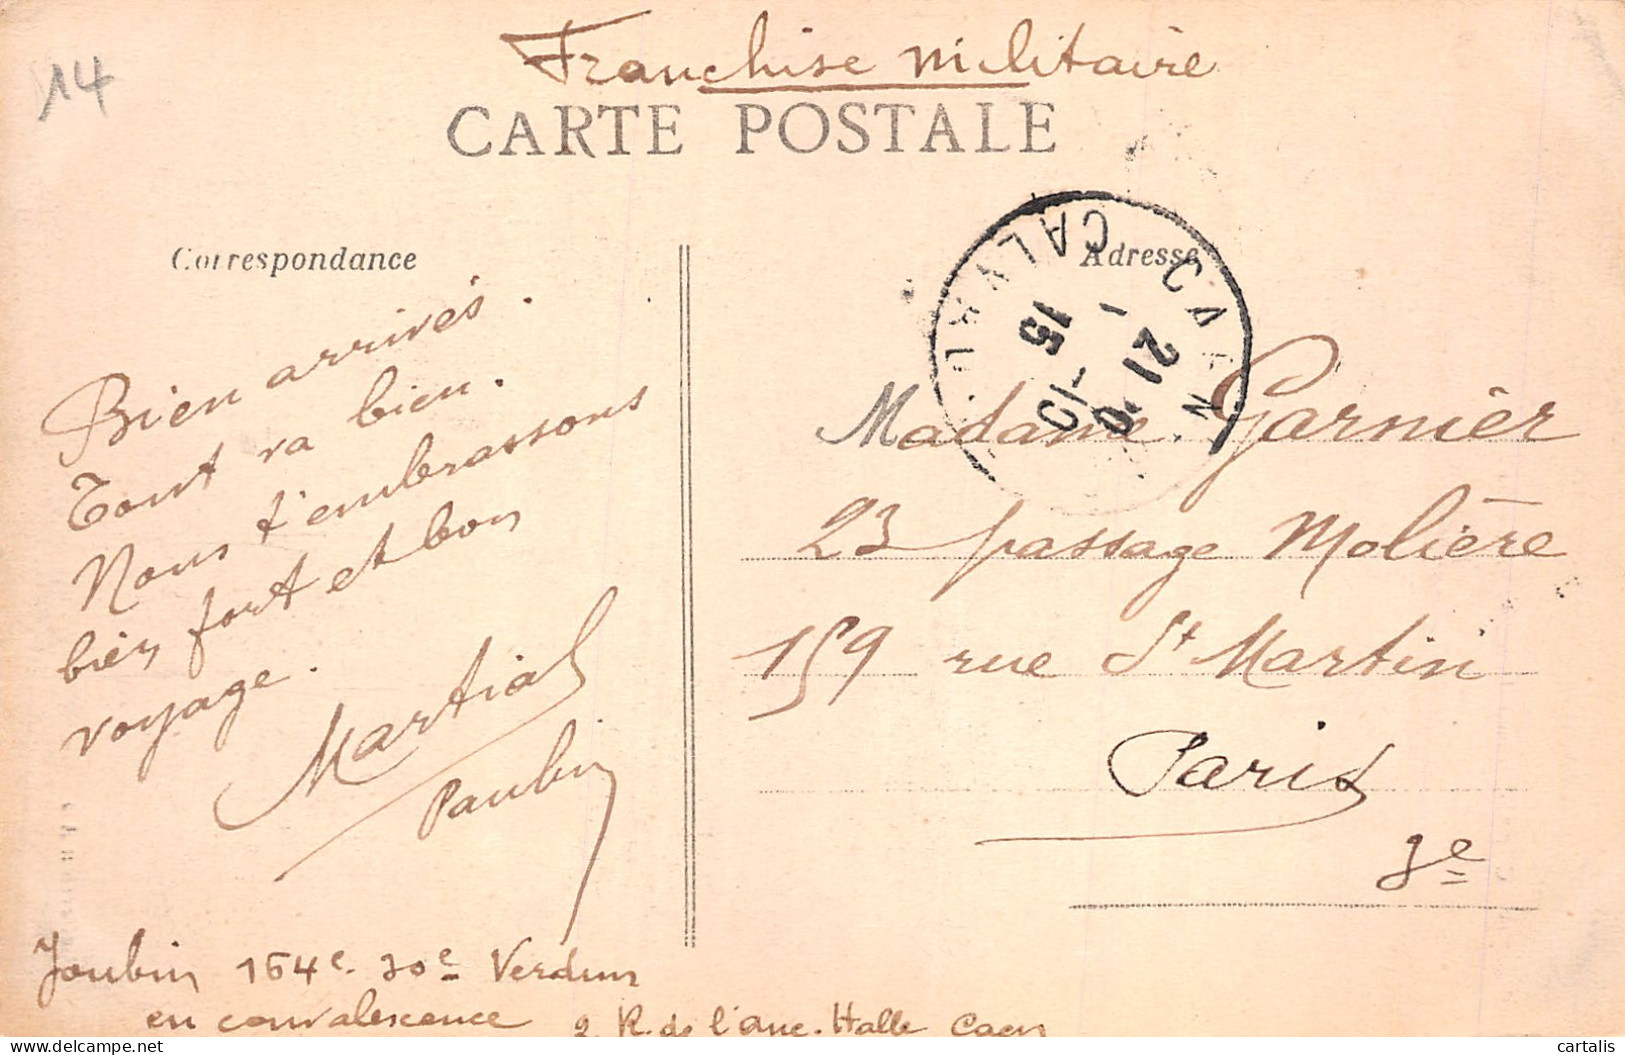 14
Franchise militaire
CARTE POSTALE
Correspondance
Adresse
CAEN
CALVADOS
21
15
Bien arrivés.
Tout va bien.
Nous t'embrassons
bien fort et bon
voyage.
Martial
Joubin 164e. 30e Verdun
en convalescence 2 R. de l'anc. Halle Caen
Madame Garnier
23 passage Molière
159 rue St Martin
Paris
3e
cartalis